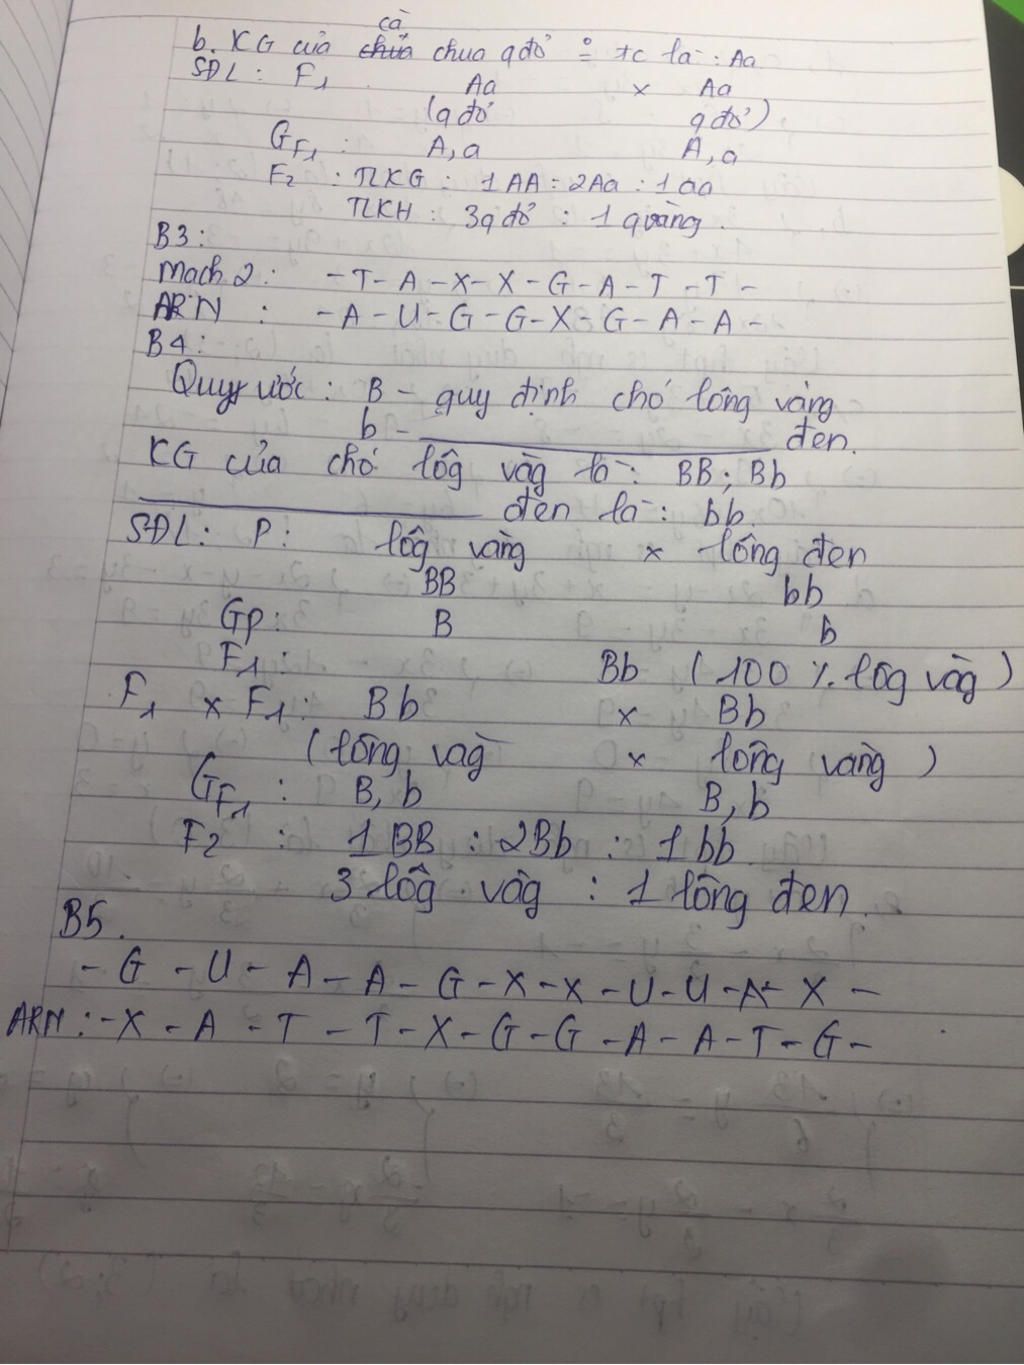 cà
b. KG của chưa chua qđỏ 0 = tc là : Aa
SĐL : F1 Aa x Aa
(qđỏ qđỏ)
GF1 : A, a A, a
F2 : TLKG : 1AA : 2Aa : 1aa
TLKH : 3qđỏ : 1 qvàng.
B3 :
Mạch 2 : - T - A - X - X - G - A - T - T -
ARN : - A - U - G - G - X - G - A - A -
B4 :
Quy ước : B - quy định chó lông vàng
b - đen.
KG của chó lôg vàg là : BB ; Bb
đen là : bb.
SĐL : P : lôg vàng x lông đen
BB bb
Gp : B b
F1 : Bb (100 % lôg vàg)
F1 x F1 : Bb x Bb
(lông vàg x lông vàng)
GF1 : B, b B, b
F2 : 1 BB : 2Bb : 1 bb
3 lôg vàg : 1 lông đen.
B5.
- G - U - A - A - G - X - X - U - U - A - X -
ARN : - X - A - T - T - X - G - G - A - A - T - G -